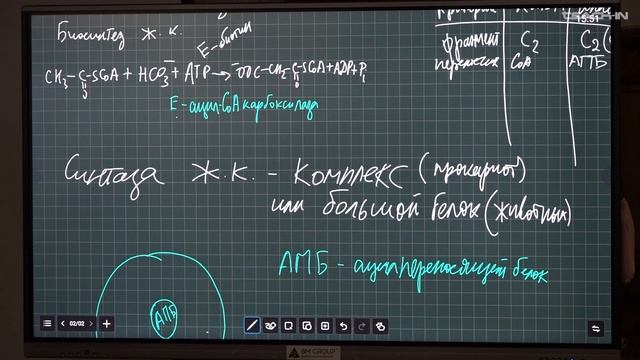 Биосинтез ж.к.
E-биотин
CH₃-C-SCoA + HCO₃⁻ + ATP → ⁻OOC-CH₂-C-SCoA + ADP + Pᵢ
O O
E-ацил-CoA карбоксилаза
15:51
фрагмент C₂ C₂(
переносчик CoA АПБ
Синтаза ж.к. - комплекс (прокариот)
или большой белок (животных)
АПБ - ацилпереносящий белок
АПБ
02/02
BM GROUP